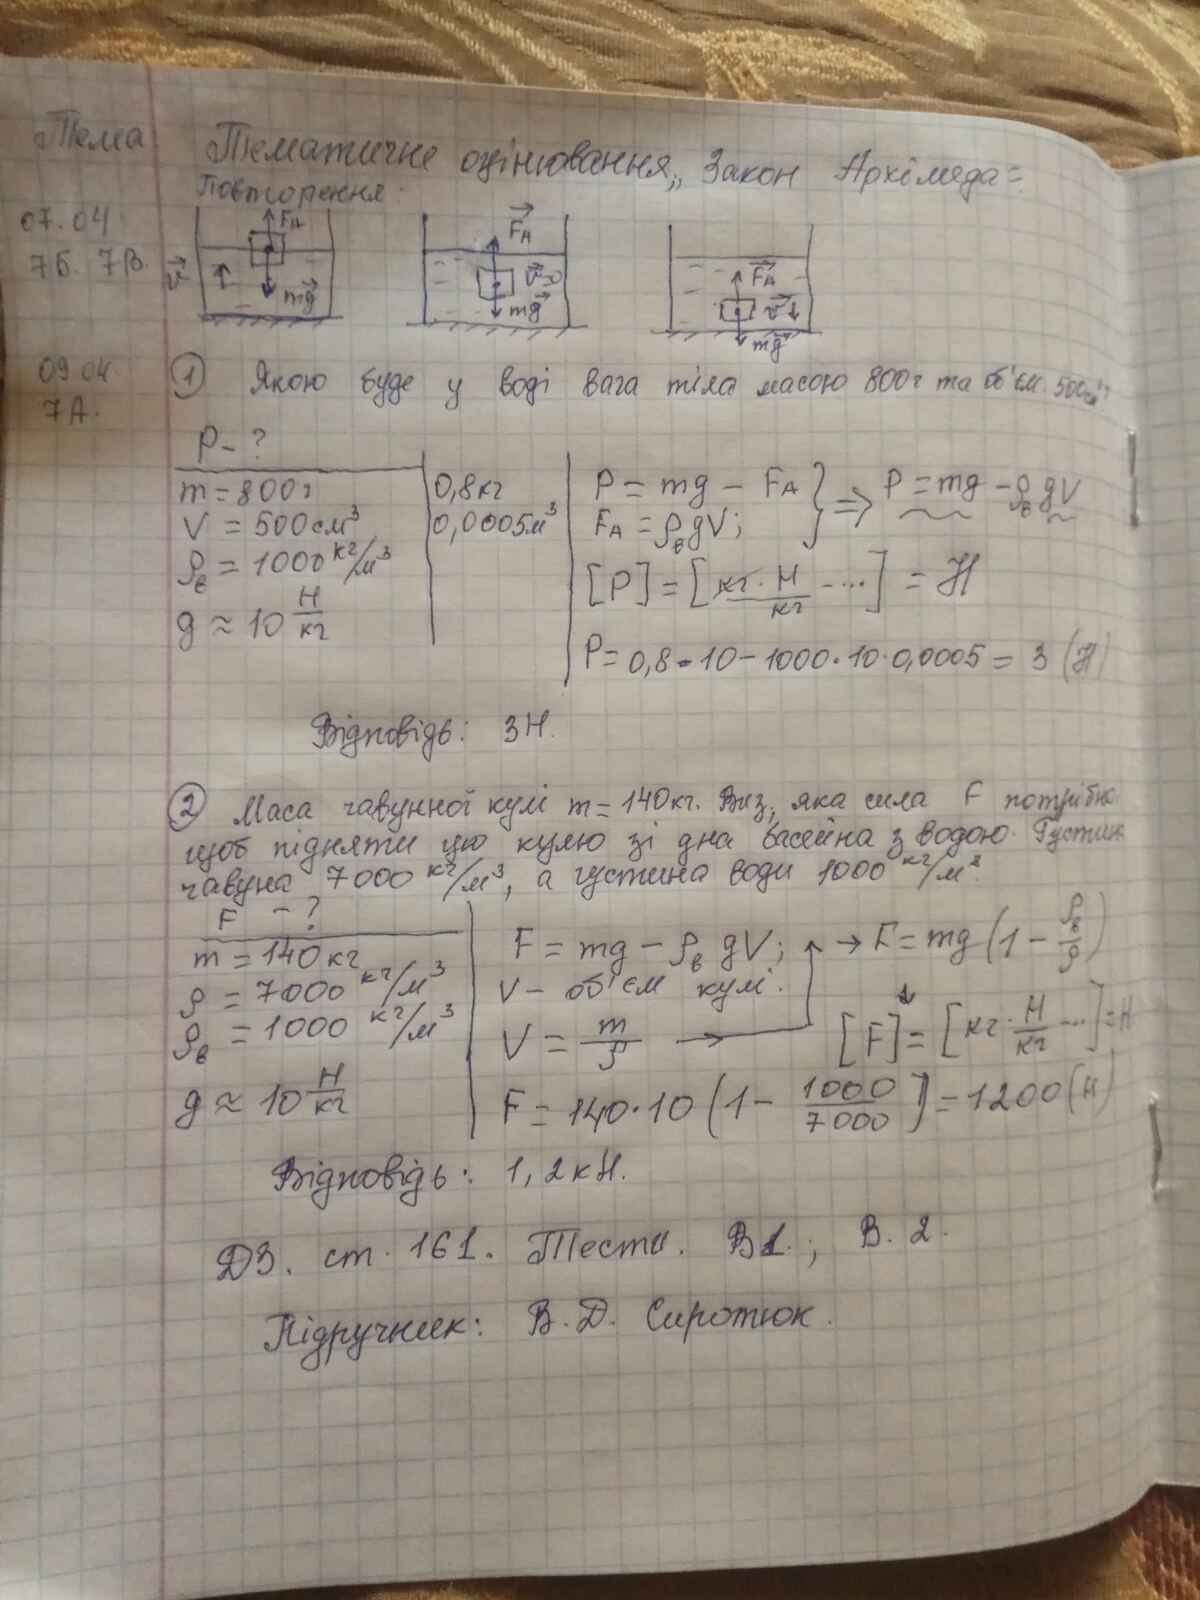 Тема Тематичне оцінювання „Закон Архімеда"
Повторення:
07.04
7Б. 7В.
F_A
mg
v
F_A
v=0
mg
F_A
v
mg
09.04.
7А.
① Якою буде у воді вага тіла масою 800г та об'єм. 500см³?
P - ?
m = 800г 0,8кг
V = 500см³ 0,0005м³
ρв = 1000 кг/м³
g ≈ 10 Н/кг
P = mg - F_A } ⇒ P = mg - ρв gV
F_A = ρв gV;
[P] = [кг · Н/кг - ...] = Н
P = 0,8 · 10 - 1000 · 10 · 0,0005 = 3 (Н)
Відповідь: 3Н.
② Маса чавунної кулі m = 140кг. Виз, яка сила F потрібна
щоб підняти цю кулю зі дна басейна з водою. Густина
чавуна 7000 кг/м³, а густина води 1000 кг/м³.
F - ?
m = 140кг
ρ = 7000 кг/м³
ρв = 1000 кг/м³
g ≈ 10 Н/кг
F = mg - ρв gV; → F = mg (1 - ρв/ρ)
V - об'єм кулі.
V = m/ρ → [F] = [кг · Н/кг - ...] = Н
F = 140 · 10 (1 - 1000/7000) = 1200 (Н)
Відповідь: 1,2кН.
ДЗ. ст. 161. Тести. В1.; В.2.
Підручник: В.Д. Сиротюк.